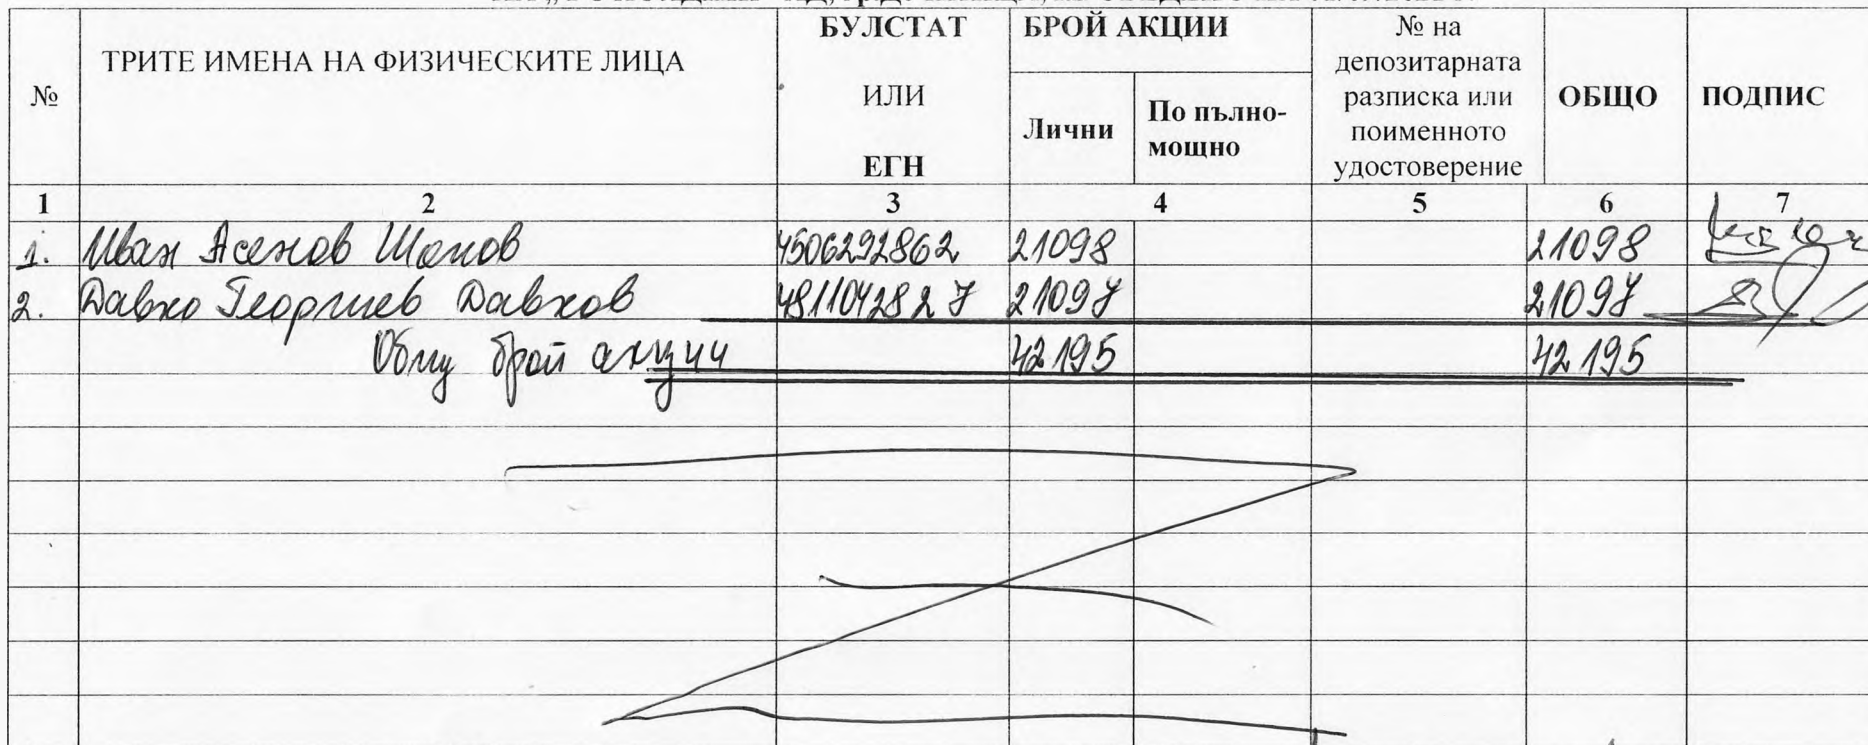 №
ТРИТЕ ИМЕНА НА ФИЗИЧЕСКИТЕ ЛИЦА
БУЛСТАТ
ИЛИ
ЕГН
БРОЙ АКЦИИ
Лични
По пълно-
мощно
№ на
депозитарната
разписка или
поименното
удостоверение
ОБЩО
ПОДПИС
1 2 3 4 5 6 7
1. Иван Асенов Шонов 4506292862 21098 21098
2. Давко Георгиев Давков 4811042827 21097 21097
Общ брой акции 42195 42195